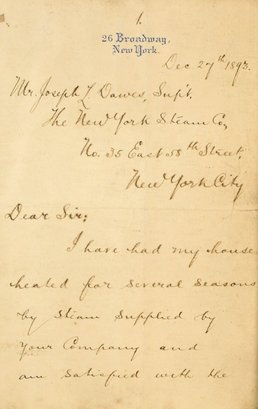 1.
26 Broadway,
New York.
Dec 27th 1893.
Mr. Joseph L Dawes, Supt.
The New York Steam Co,
No. 35 East 58th Street,
New York City
Dear Sir;
I have had my house
heated for several seasons
by steam supplied by
your Company and
am satisfied with the